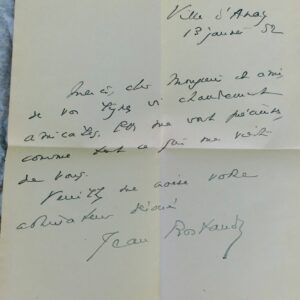 Ville d'Avray
13 janvier 52
Merci, cher Monsieur et ami,
de vos lignes si chaudement
amicales. Elles me sont précieuses
comme tout ce qui me vient
de vous.
Veuillez me croire votre
admirateur dévoué
Jean Rostand